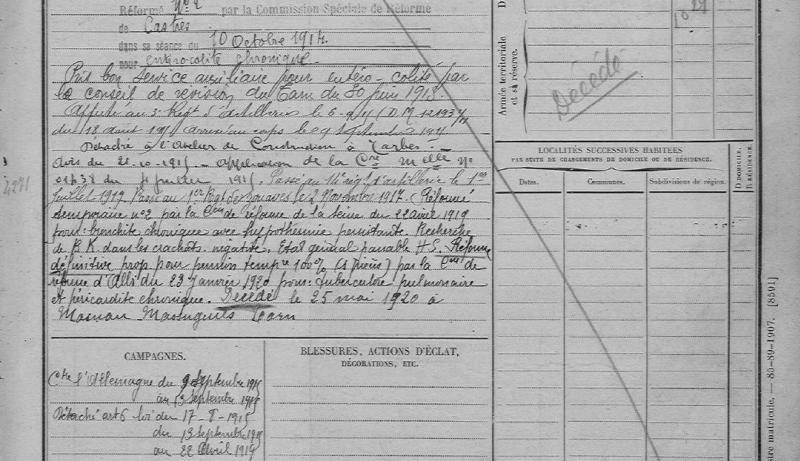 Réformé N° 2 par la Commission Spéciale de Réforme
de Castres
dans sa séance du 10 Octobre 1914.
pour entérocolite chronique.
Pris bon service auxiliaire pour entéro-colite par
le conseil de révision du Tarn du 30 juin 1915.
Affecté au 3e Régt d'artillerie le
du 18 août 1915 arrivé au corps le 9 septembre
Détaché à l'atelier de Construction à Tarbes.
du 22-10-1915. application de la Cre Melle No
du juillet 1915. Passé au régt d'artillerie le 1er
juillet 1917. Passé au 1er Régt de zouaves le 2 Novembre 1917. Réformé
temporaire n°2 par la Con de réforme de la Seine du 22 avril 1919
pour: bronchite chronique avec hypothermie persistante. Recherche
de B.K. dans les crachats négative. Etat général passable H.S. Réforme
définitive prop. pour pension tempre 100% par la Con de
réforme d'Albi du 23 janvier 1920 pour: tuberculose pulmonaire
et péricardite chronique. Décédé le 25 mai 1920 à
Tarn
4271
CAMPAGNES.
Ctre l'Allemagne du 9 Septembre 1915
au 13 Septembre 1915
Détaché art 6 loi du 17-8-1915
du 13 Septembre 1915
au 22 Avril 1919
BLESSURES, ACTIONS D'ÉCLAT,
DÉCORATIONS, ETC.
Armée territoriale
et sa réserve.
Décédé
LOCALITÉS SUCCESSIVES HABITÉES
PAR SUITE DE CHANGEMENTS DE DOMICILE OU DE RÉSIDENCE.
Dates.
Communes.
Subdivisions de région.
D DOMICILE.
R RÉSIDENCE.
matricule. — 85-89-1907. [8591]